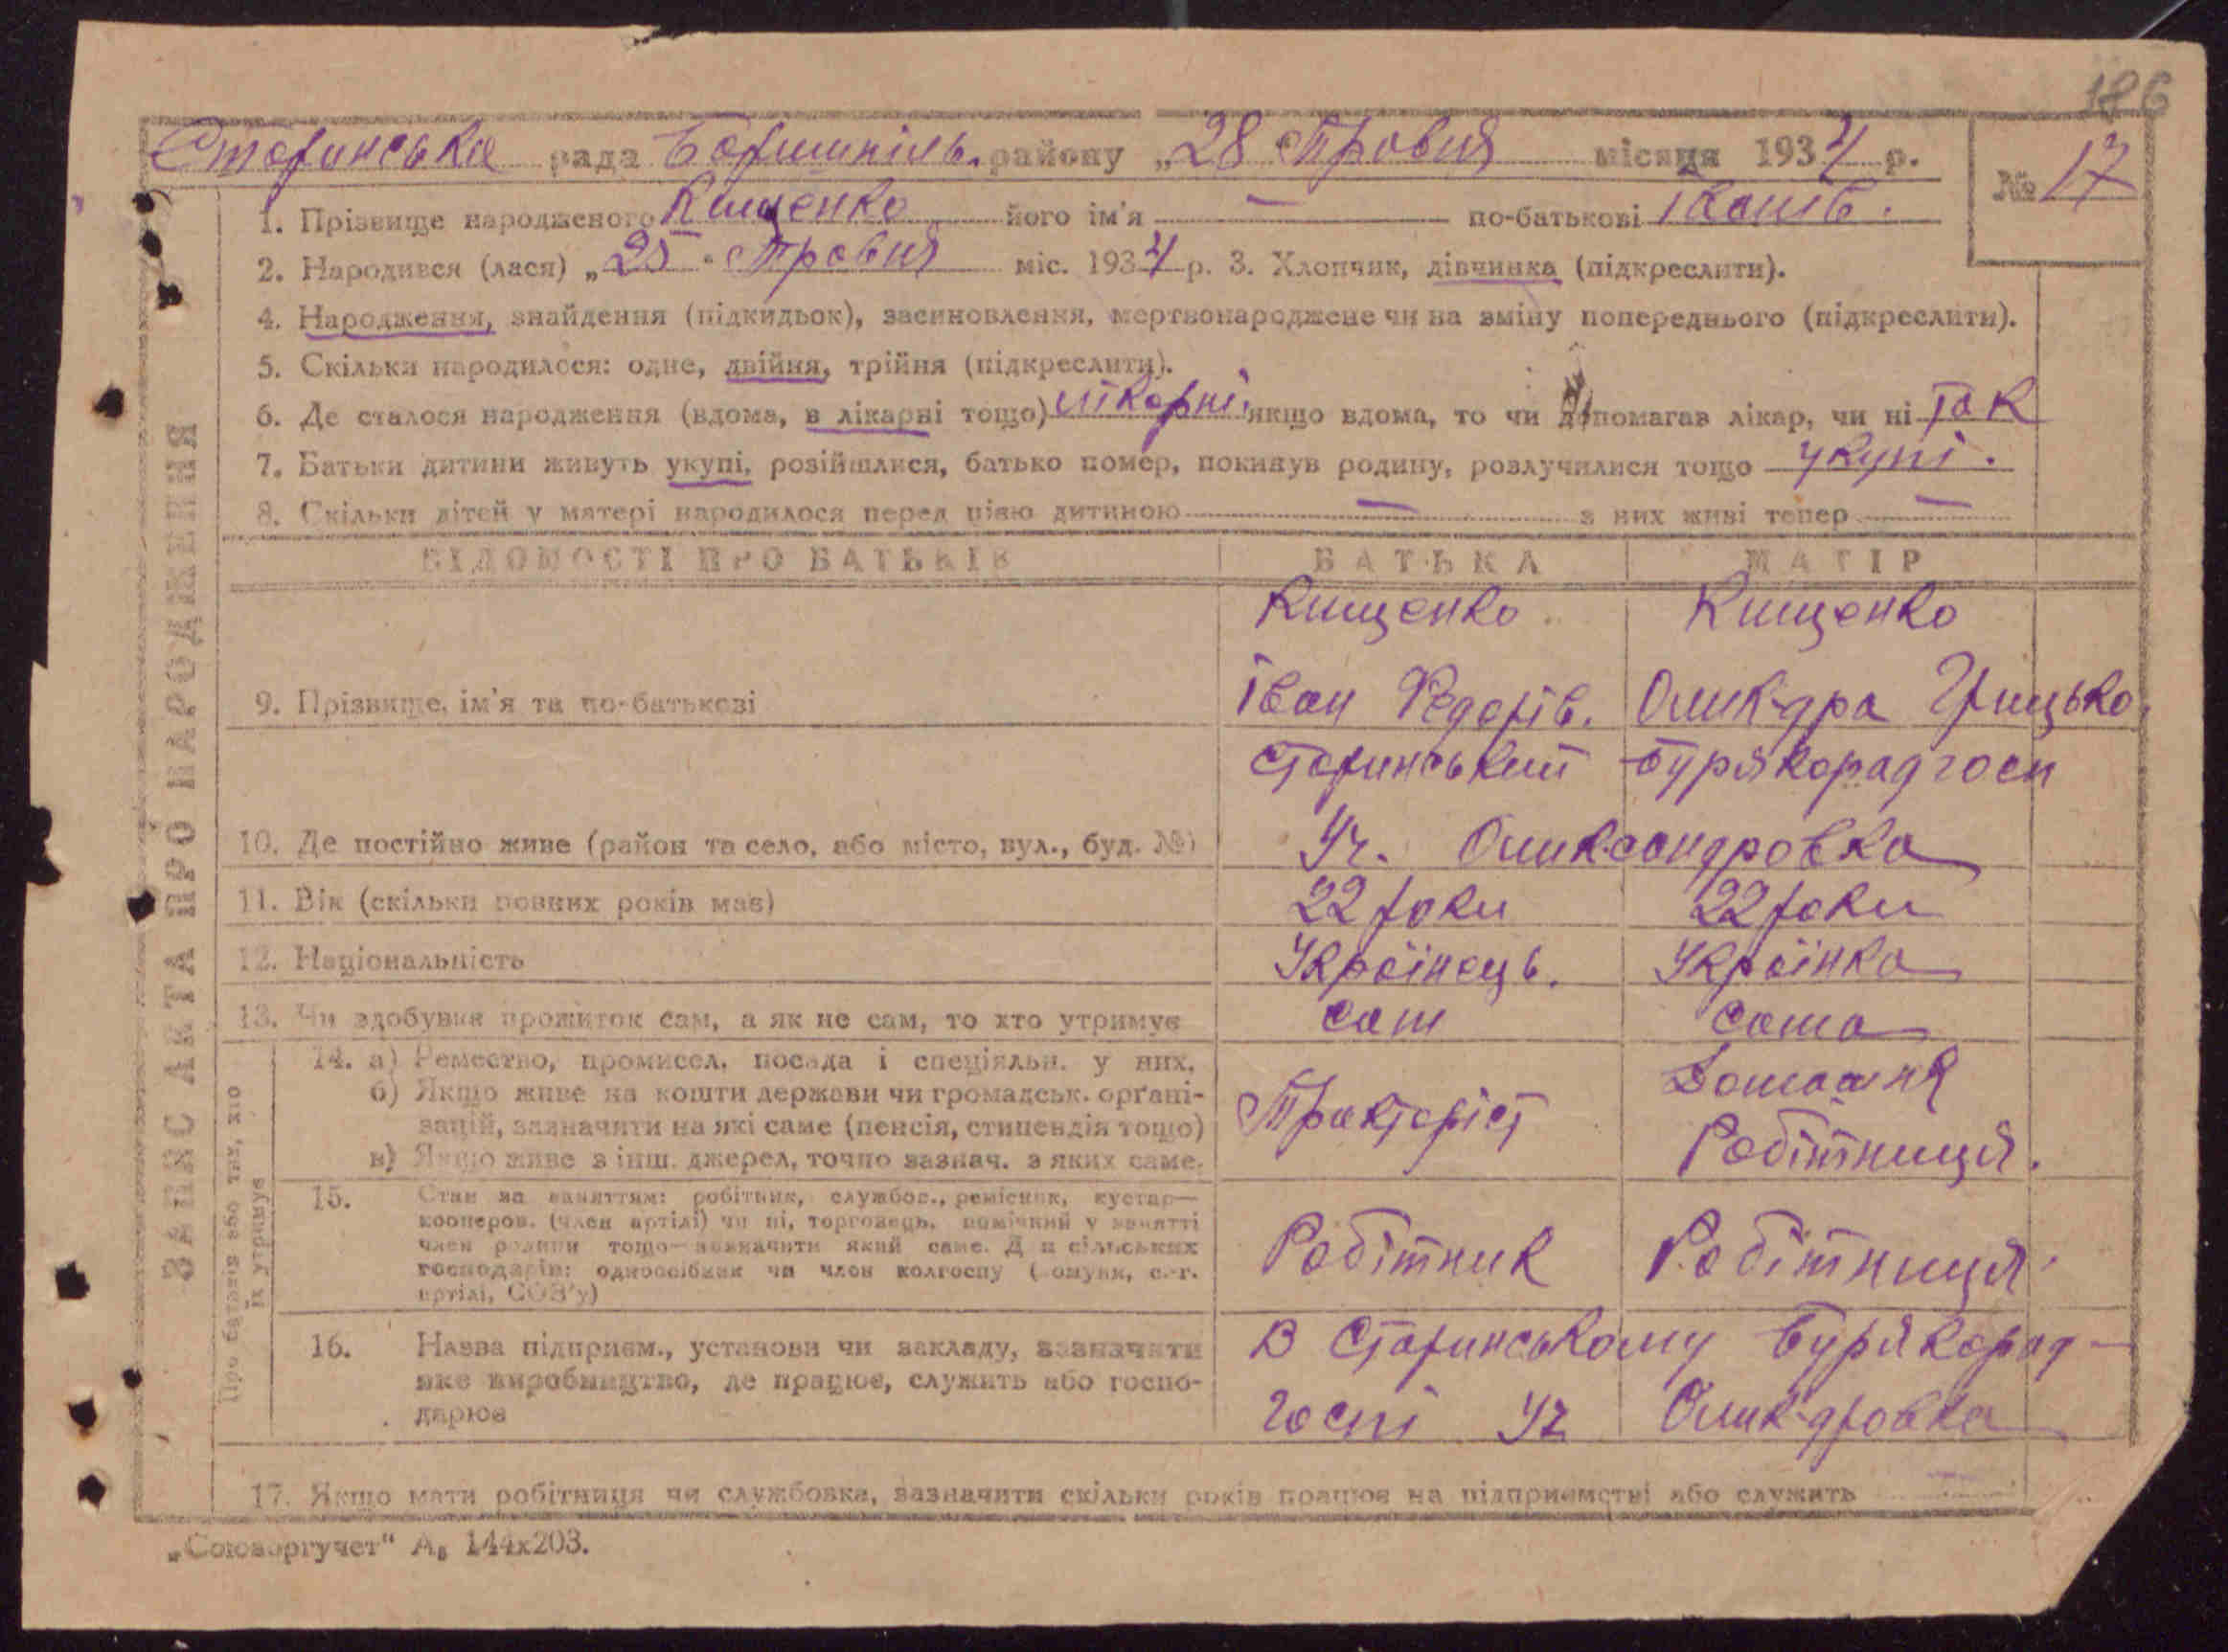 186
Старинська рада Боришпіль. району „28 Травня місяця 1934 р.
№ 17
1. Прізвище народженого Кищенко його ім'я — по-батькові Іванів.
2. Народився (лася) „25 Травня міс. 1934 р. 3. Хлопчик, дівчинка (підкреслити).
4. Народження, знайдення (підкидьок), засиновлення, мертвонароджене чи на зміну попереднього (підкреслити).
5. Скільки народилося: одне, двійня, трійня (підкреслити).
6. Де сталося народження (вдома, в лікарні тощо) лікарні якщо вдома, то чи допомагав лікар, чи ні так
7. Батьки дитини живуть укупі, розійшлися, батько помер, покинув родину, розлучилися тощо укупі.
8. Скільки дітей у матері народилося перед цією дитиною — з них живі тепер —
ЗАПИС АКТА ПРО НАРОДЖЕННЯ
ВІДОМОСТІ ПРО БАТЬКІВ БАТЬКА МАТІР
Кищенко Кищенко
9. Прізвище, ім'я та по-батькові Іван Федорів. Олик-дра Грицько.
Старинський бурякорадгосп
10. Де постійно живе (район та село, або місто, вул., буд. №) Уч. Олександровка
11. Вік (скільки повних років має) 22 роки 22 роки
12. Національність Українець. Українка
13. Чи здобував прожиток сам, а як не сам, то хто утримує сам сама
Про батьків або тих, хто їх утримує
14. а) Ремество, промисел, посада і спеціяльн. у них.
б) Якщо живе на кошти держави чи громадськ. орґані-
зацій, зазначити на які саме (пенсія, стипендія тощо)
в) Якщо живе з інш. джерел, точно зазнач. з яких саме.
Тракторіст Домашня
Робітниця.
15. Стан за заняттям: робітник, службов., ремісник, кустар—
кооперов. (член артілі) чи ні, торговець, помічний у занятті
член родини тощо—зазначити який саме. Для сільських
господарів: одноосібник чи член колгоспу (комуни, с.-г.
артілі, СОЗ'у)
Робітник Робітниця
16. Назва підприєм., установи чи закладу, зазначити
яке виробництво, де працює, служить або госпо-
дарює
В Старинському бурякорад-
госпі Уч Олик-дровка
17. Якщо мати робітниця чи службовка, зазначити скільки років працює на підприємстві або служить
„Союзоргучет" А₅ 144х203.